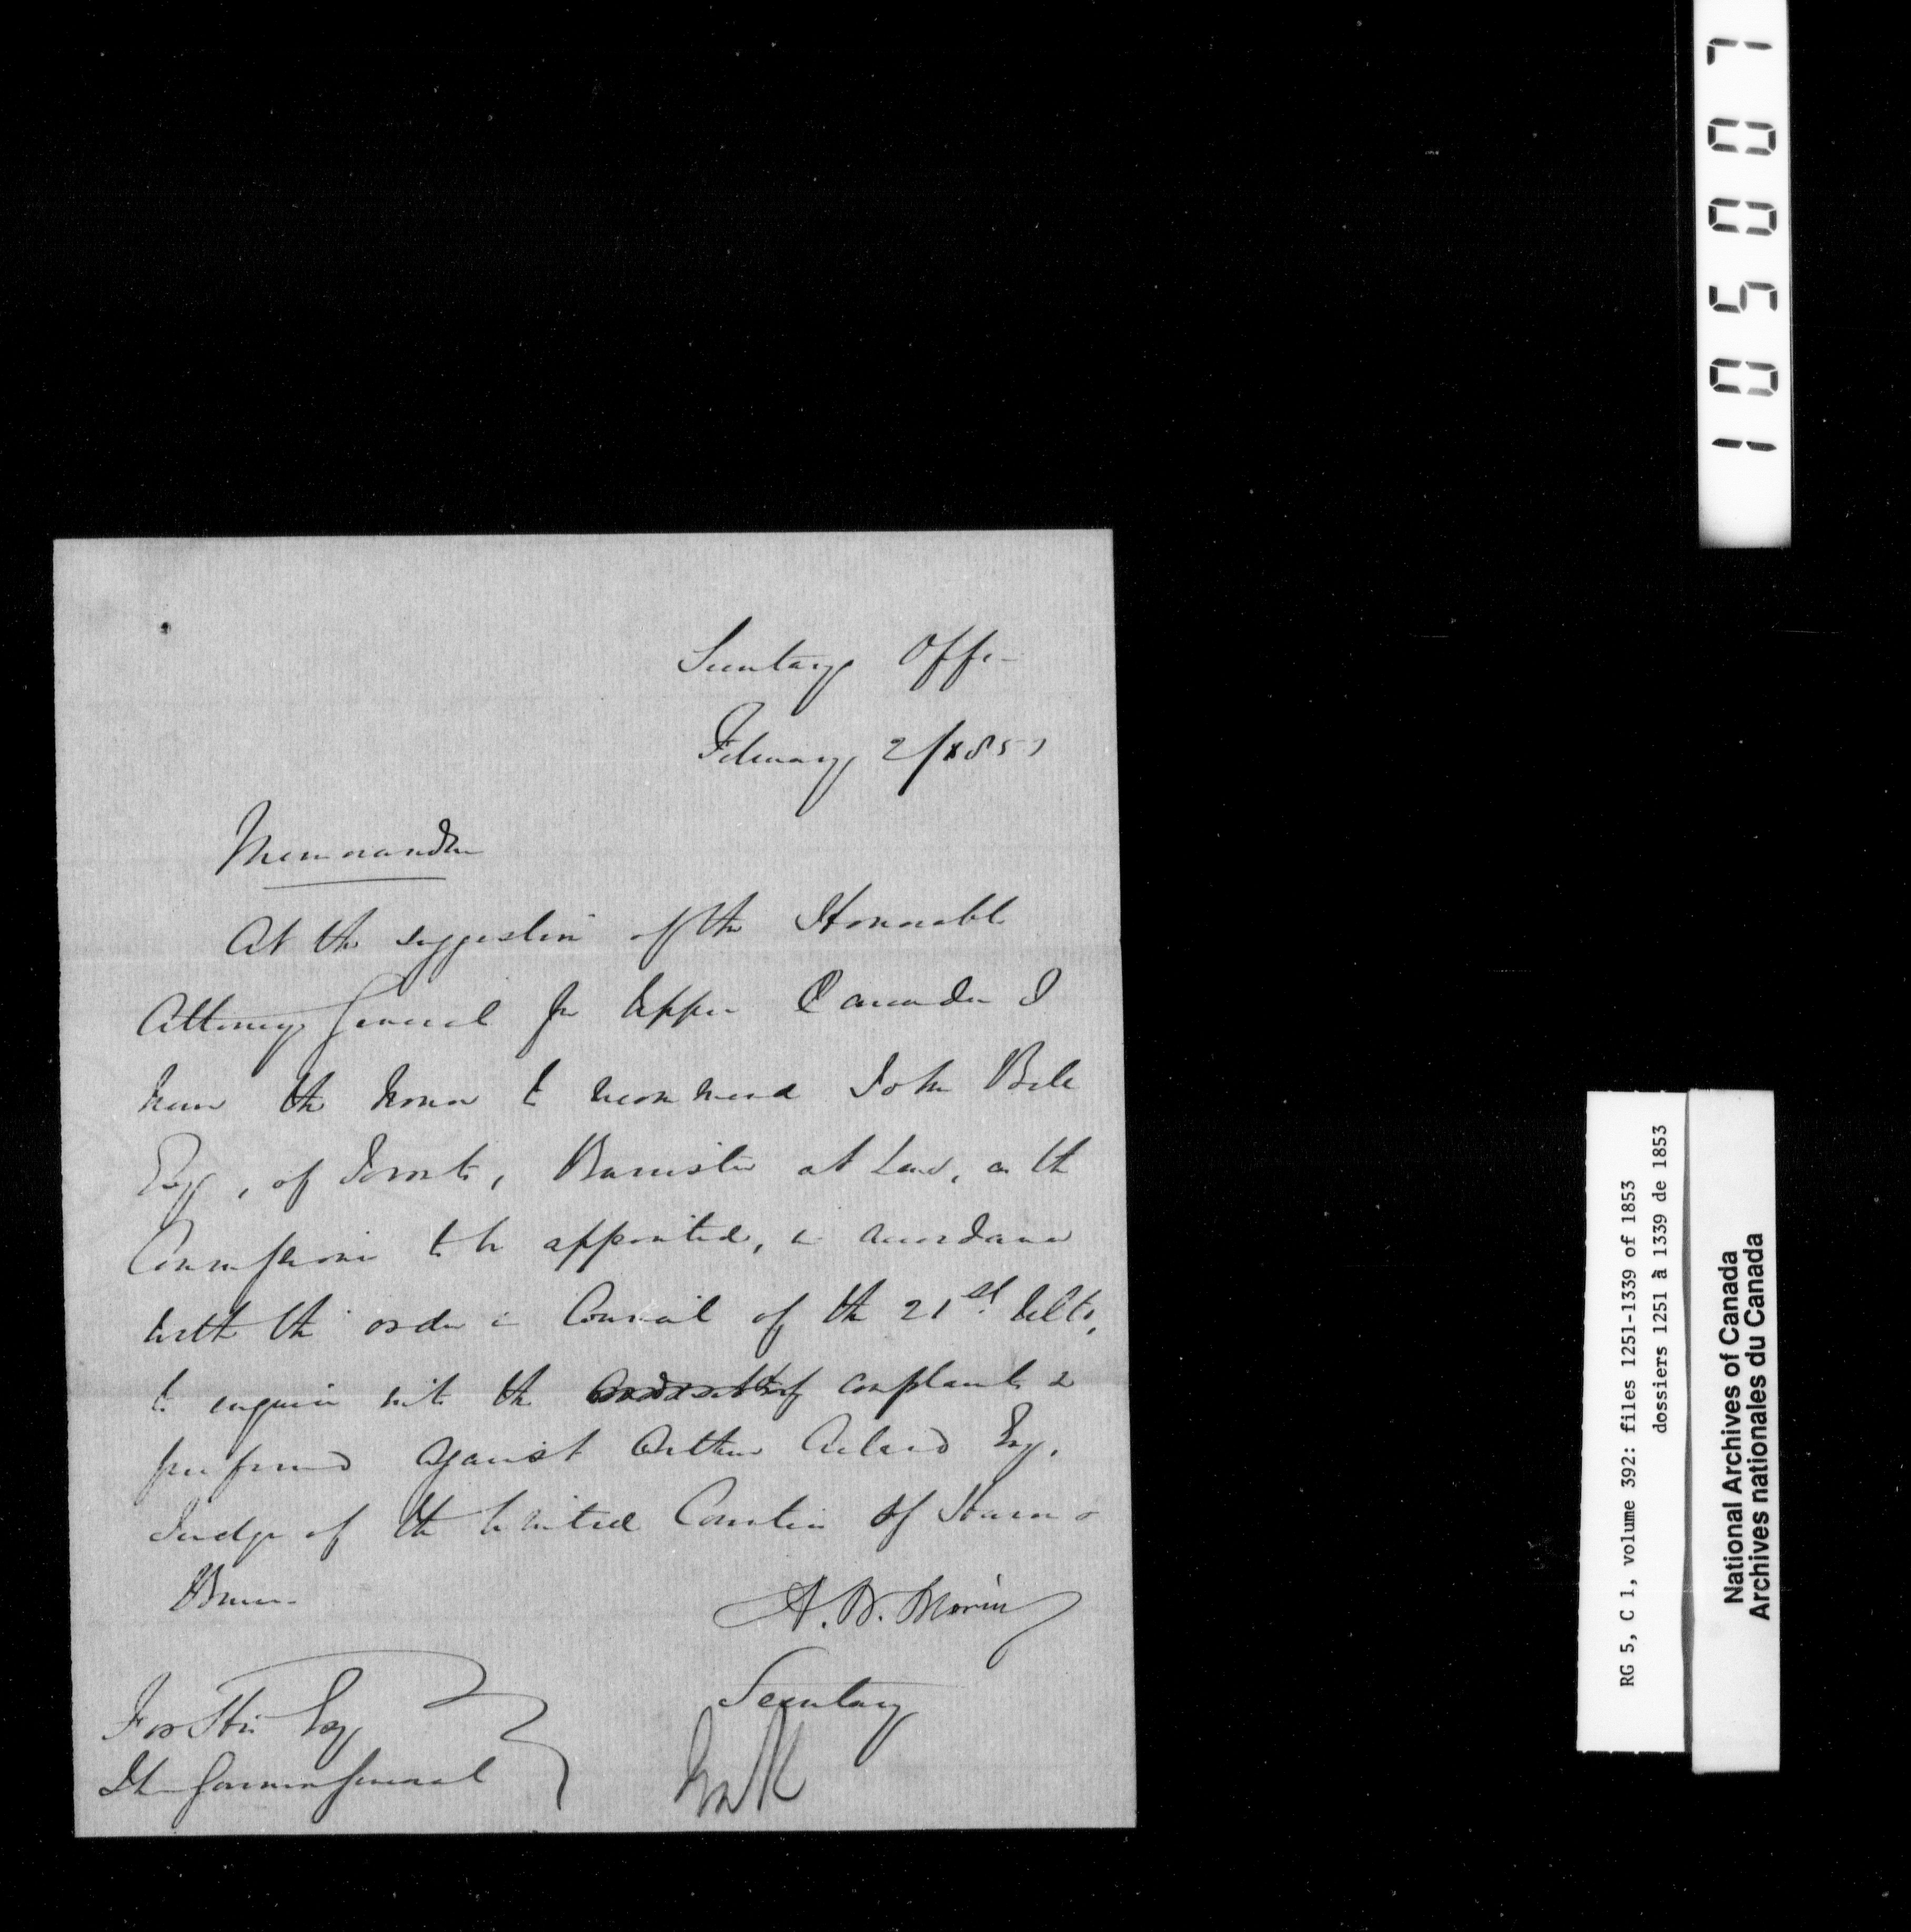 Secretarys Office
February 2/1853
Memorandum
At the suggestion of the Honorable
Attorney General for Upper Canada I
have the honor to recommend John Bell
Esqr, of Toronto, Barrister at Law, as the
Commissioner to be appointed, in accordance
with the order in Council of the 21st Ulto,
to enquire into the complaints
preferred against Arthur Acland Esq.
Judge of the United Counties of Huron &
Bruce.
A. N. Morin
Secretary
For His Exy
The Governor General
105007
RG 5, C 1, volume 392: files 1251-1339 of 1853
dossiers 1251 à 1339 de 1853
National Archives of Canada
Archives nationales du Canada